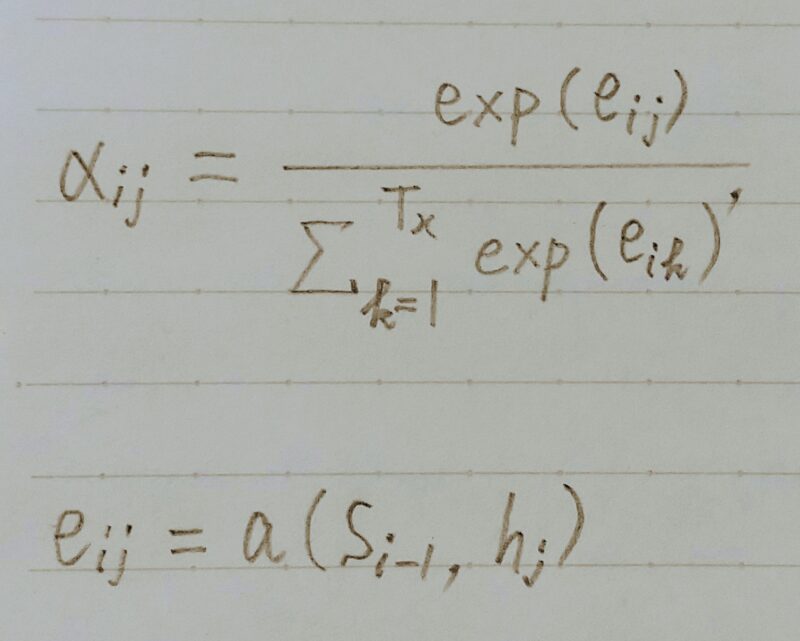 αij = exp(eij) / ∑k=1 Tx exp(eik),
eij = a(Si-1, hj)